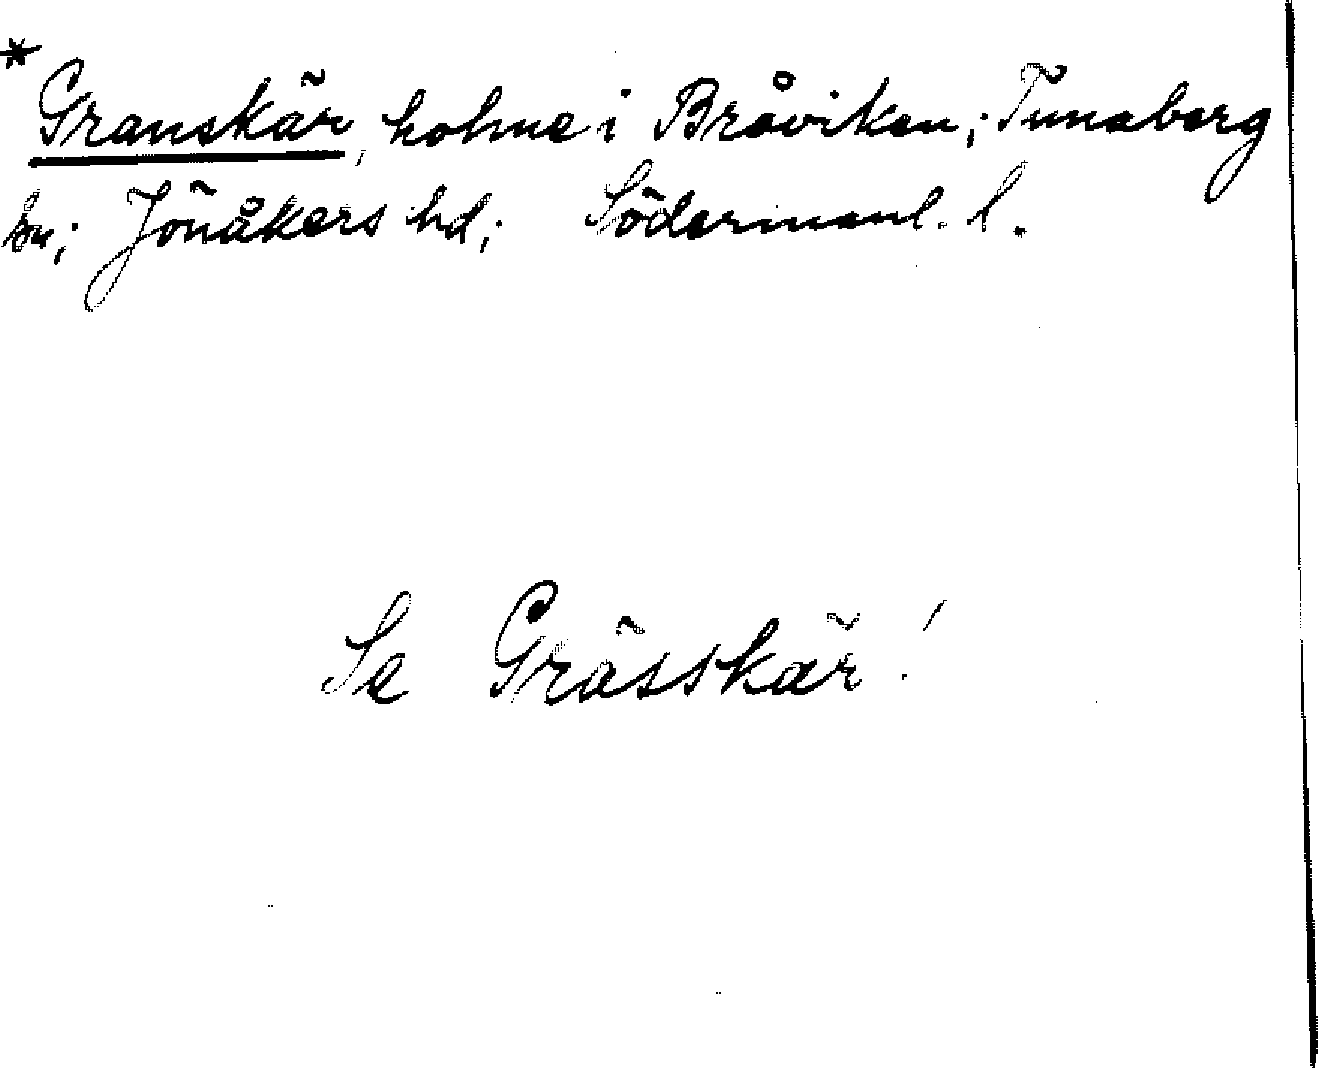 *Granskär, holme i Bråviken; Tunaberg
sn; Jönåkers hd; Södermanl. l.
Se Grässkär!